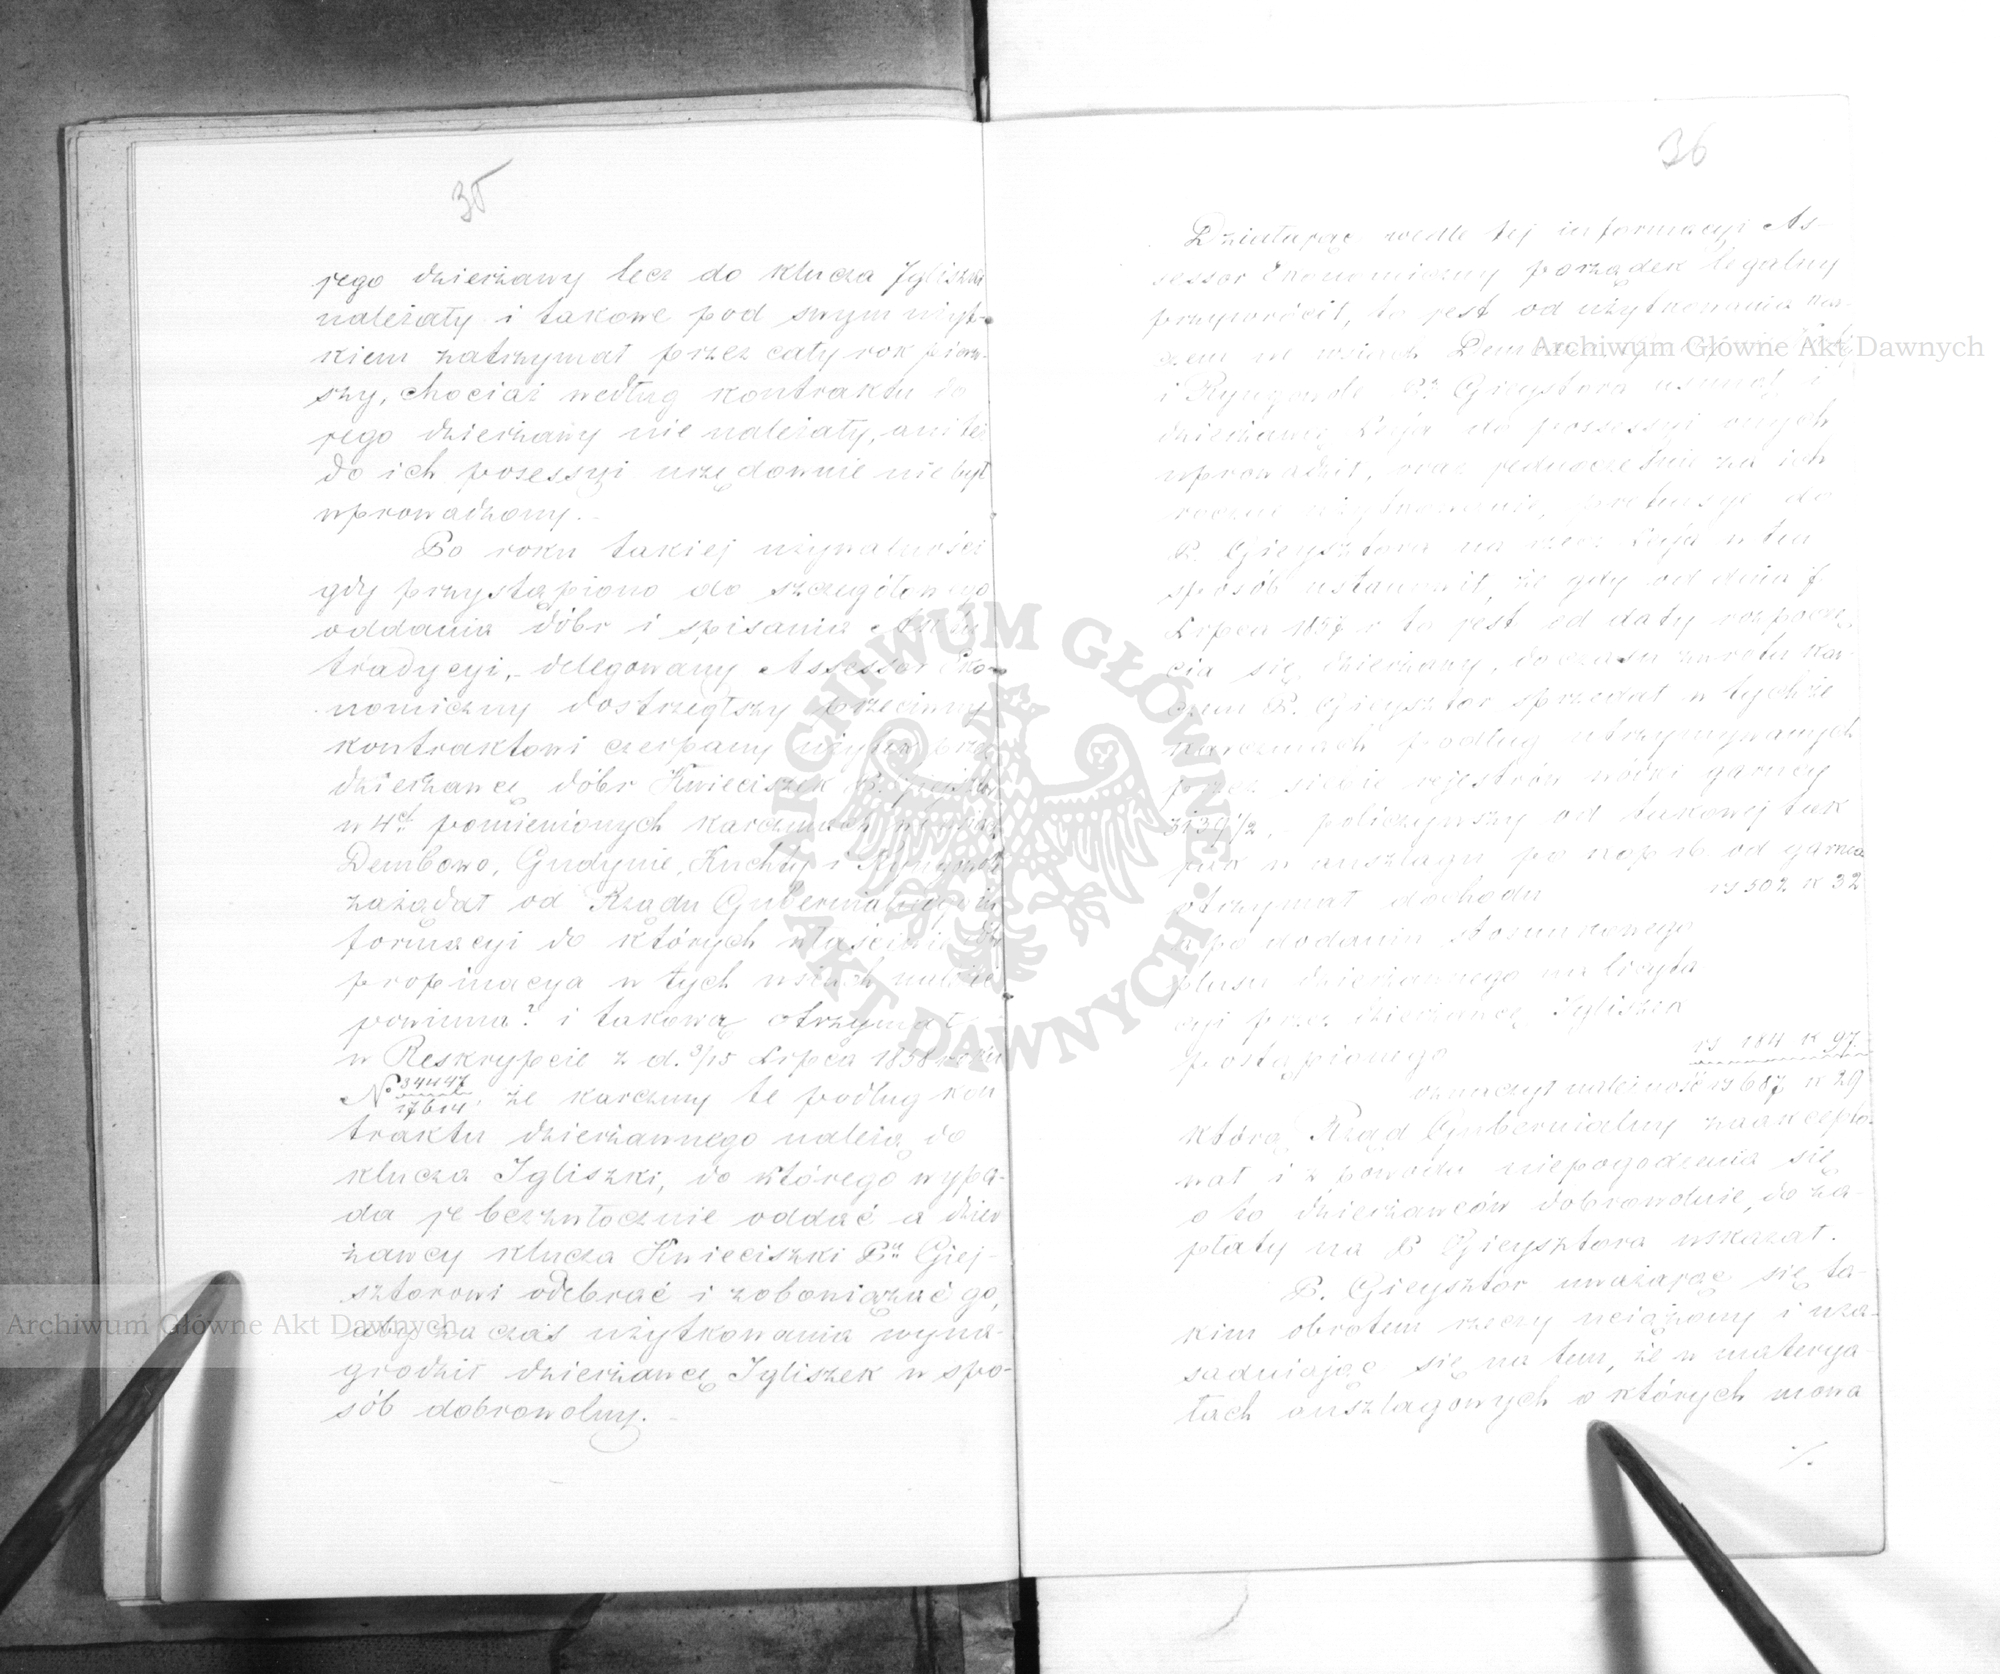 35
jego dzierżawy lecz do klucza Igliszki
należały i takowe pod swym użyt-
kiem zatrzymał przez cały rok pierw-
szy, chociaż według kontraktu do
jego dzierżawy nie należały, ani też
do ich posessyi urzędownie nie był
wprowadzony. –
Po roku takiej używalności
gdy przystąpiono do szczegółowego
oddania dóbr i spisania
tradycyi, – delegowany Assessor Eko-
nomiczny dostrzegłszy przeciwny
kontraktowi czerpany użytek przez
dzierżawcę dóbr Kwieciszek P.
w 4ch pomienionych karczmach
Dembowo, Gudynie, Kuchty i
zażądał od Rządu Gubernialnego in
formacyi do których właściwie dóbr
propinacya w tych wsiach należeć
powinna? i takową otrzymał
w Reskrypcie z d. 3/15 Lipca 1858 roku
N° 34447/17614, że karczmy te podług kon
traktu dzierżawnego należą do
klucza Igliszki, do którego wypa-
da je bezzwłocznie oddać a dzier
żawcy klucza Kwieciszki Pu Giej-
sztorowi odebrać i zobowiązać go,
aby za czas użytkowania wyna-
grodził dzierżawcę Igliszek w spo-
sób dobrowolny. –
36
Działając wedle tej informacyi As-
sessor Ekonomiczny porządek legalny
przywrócił, to jest od użytkowania kar-
czem we wsiach
i Ryngwole Pa Gieysztora usunął i
dzierżawcę do possessyi onych
wprowadził, oraz jednocześnie za ich
roczne użytkowanie, pretensye do
P. Gieysztora na rzecz w ten
sposób ustanowił, że gdy od dnia
Lipca 1857 r to jest od daty rozpoczę
cia się dzierżawy, do czasu zwrotu kar-
czem P. Gieysztor sprzedał w tychże
karczmach podług utrzymywanych
przez siebie rejestrów wódki garncy
3139 1/2, – policzywszy od takowej tak
jak w anszlagu po kop 16 od garnca
otrzymał dochodu rs 502 k 32
a po dodaniu stosunkowego
plusu dzierżawnego na licyta
cyi przez dzierżawcę Igliszek
postąpionego rs 184 k 97.
oznaczył należność rs 687 k 29
którą Rząd Gubernialny zaakcepto-
wał i z powodu niepogodzenia się
o to dzierżawców dobrowolnie, do za-
płaty na P Gieysztora wskazał.
P. Gieysztor uważając się ta-
kim obrotem rzeczy uciążony i uza-
sadniając się na tem, że w materya-
łach anszlagowych o których mowa
./.
Archiwum Główne Akt Dawnych
Archiwum Główne Akt Dawnych
ARCHIWUM GŁÓWNE AKT DAWNYCH